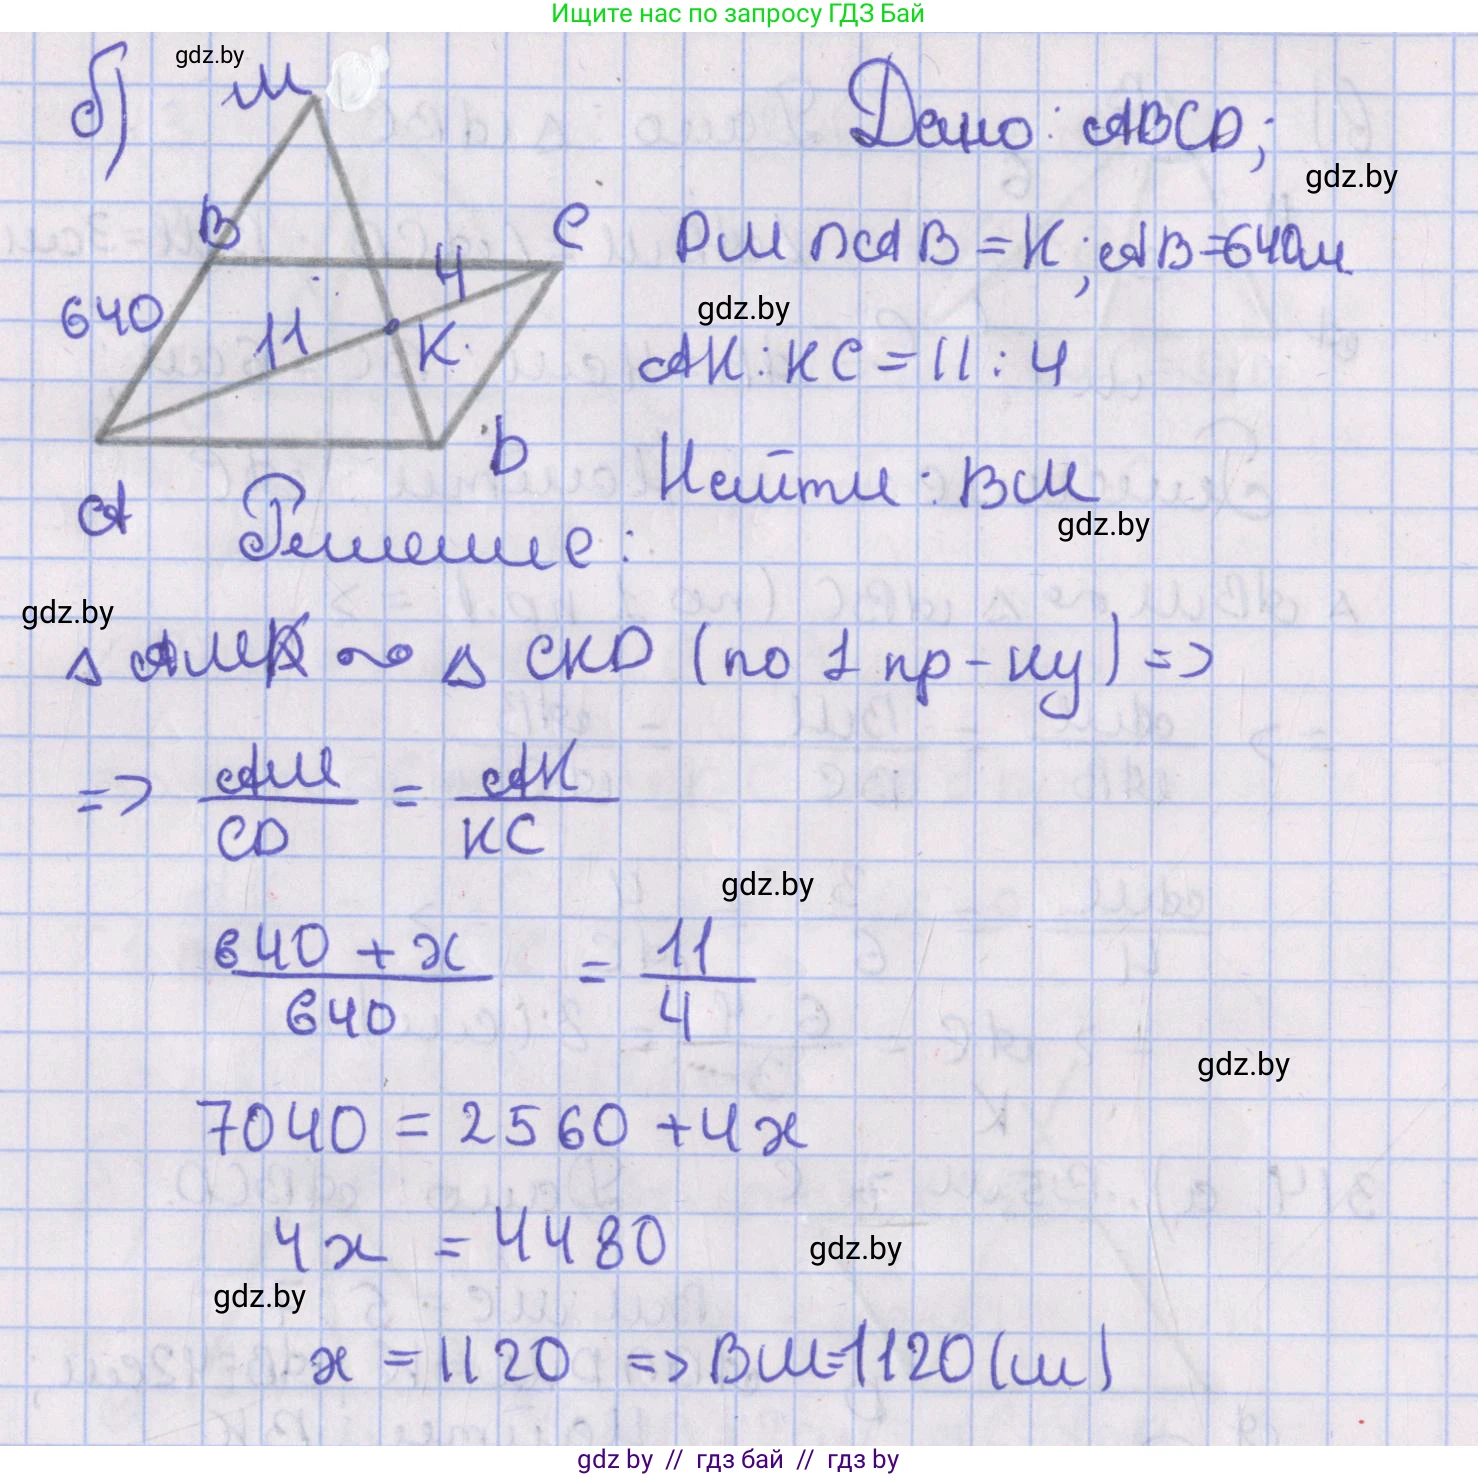 Ищите нас по запросу ГДЗ Бай
gdz.by
б) М
Дано: ABCD;
gdz.by
B C
DM ∩ AB = K; AB = 640м
4
640 11 K
gdz.by
AK : KC = 11 : 4
D
Найти: BM
A
gdz.by
Решение:
gdz.by
△ AMK ∾ △ CKD (по 1 пр-ку) =>
=> AM/CD = AK/KC
gdz.by
640 + x / 640 = 11/4
gdz.by
7040 = 2560 + 4x
4x = 4480
gdz.by
gdz.by
x = 1120 => BM = 1120 (м)
gdz by // гдз бай // гдз by